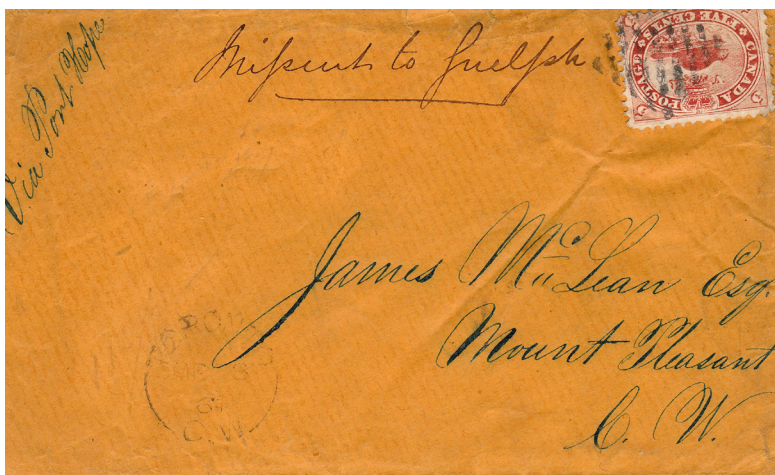 Via Port Hope
Missent to Guelph
CANADA POSTAGE
FIVE CENTS
James McLean Esq.
Mount Pleasant
C. W.
C.W